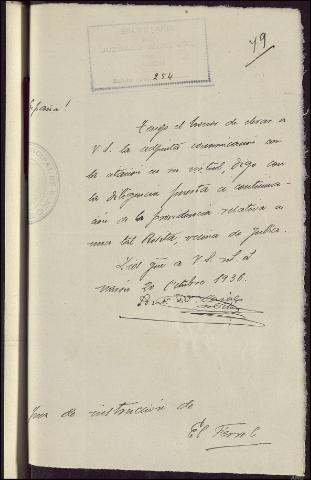 SECRETARIA
JUZGADO MUNICIPAL
254
49
España!
Tengo el honor de elevar a
V.S. la adjunta comunicacion con
la atación en su virtud, digo con
la diligencia puesta a continua-
ción de la providencia relativa a
una tal Rosita, vecina de Jubia.
Dios gue a V.S. m a
Narón 20 Octubre 1936.
Juez de instrucción de
El Ferrol